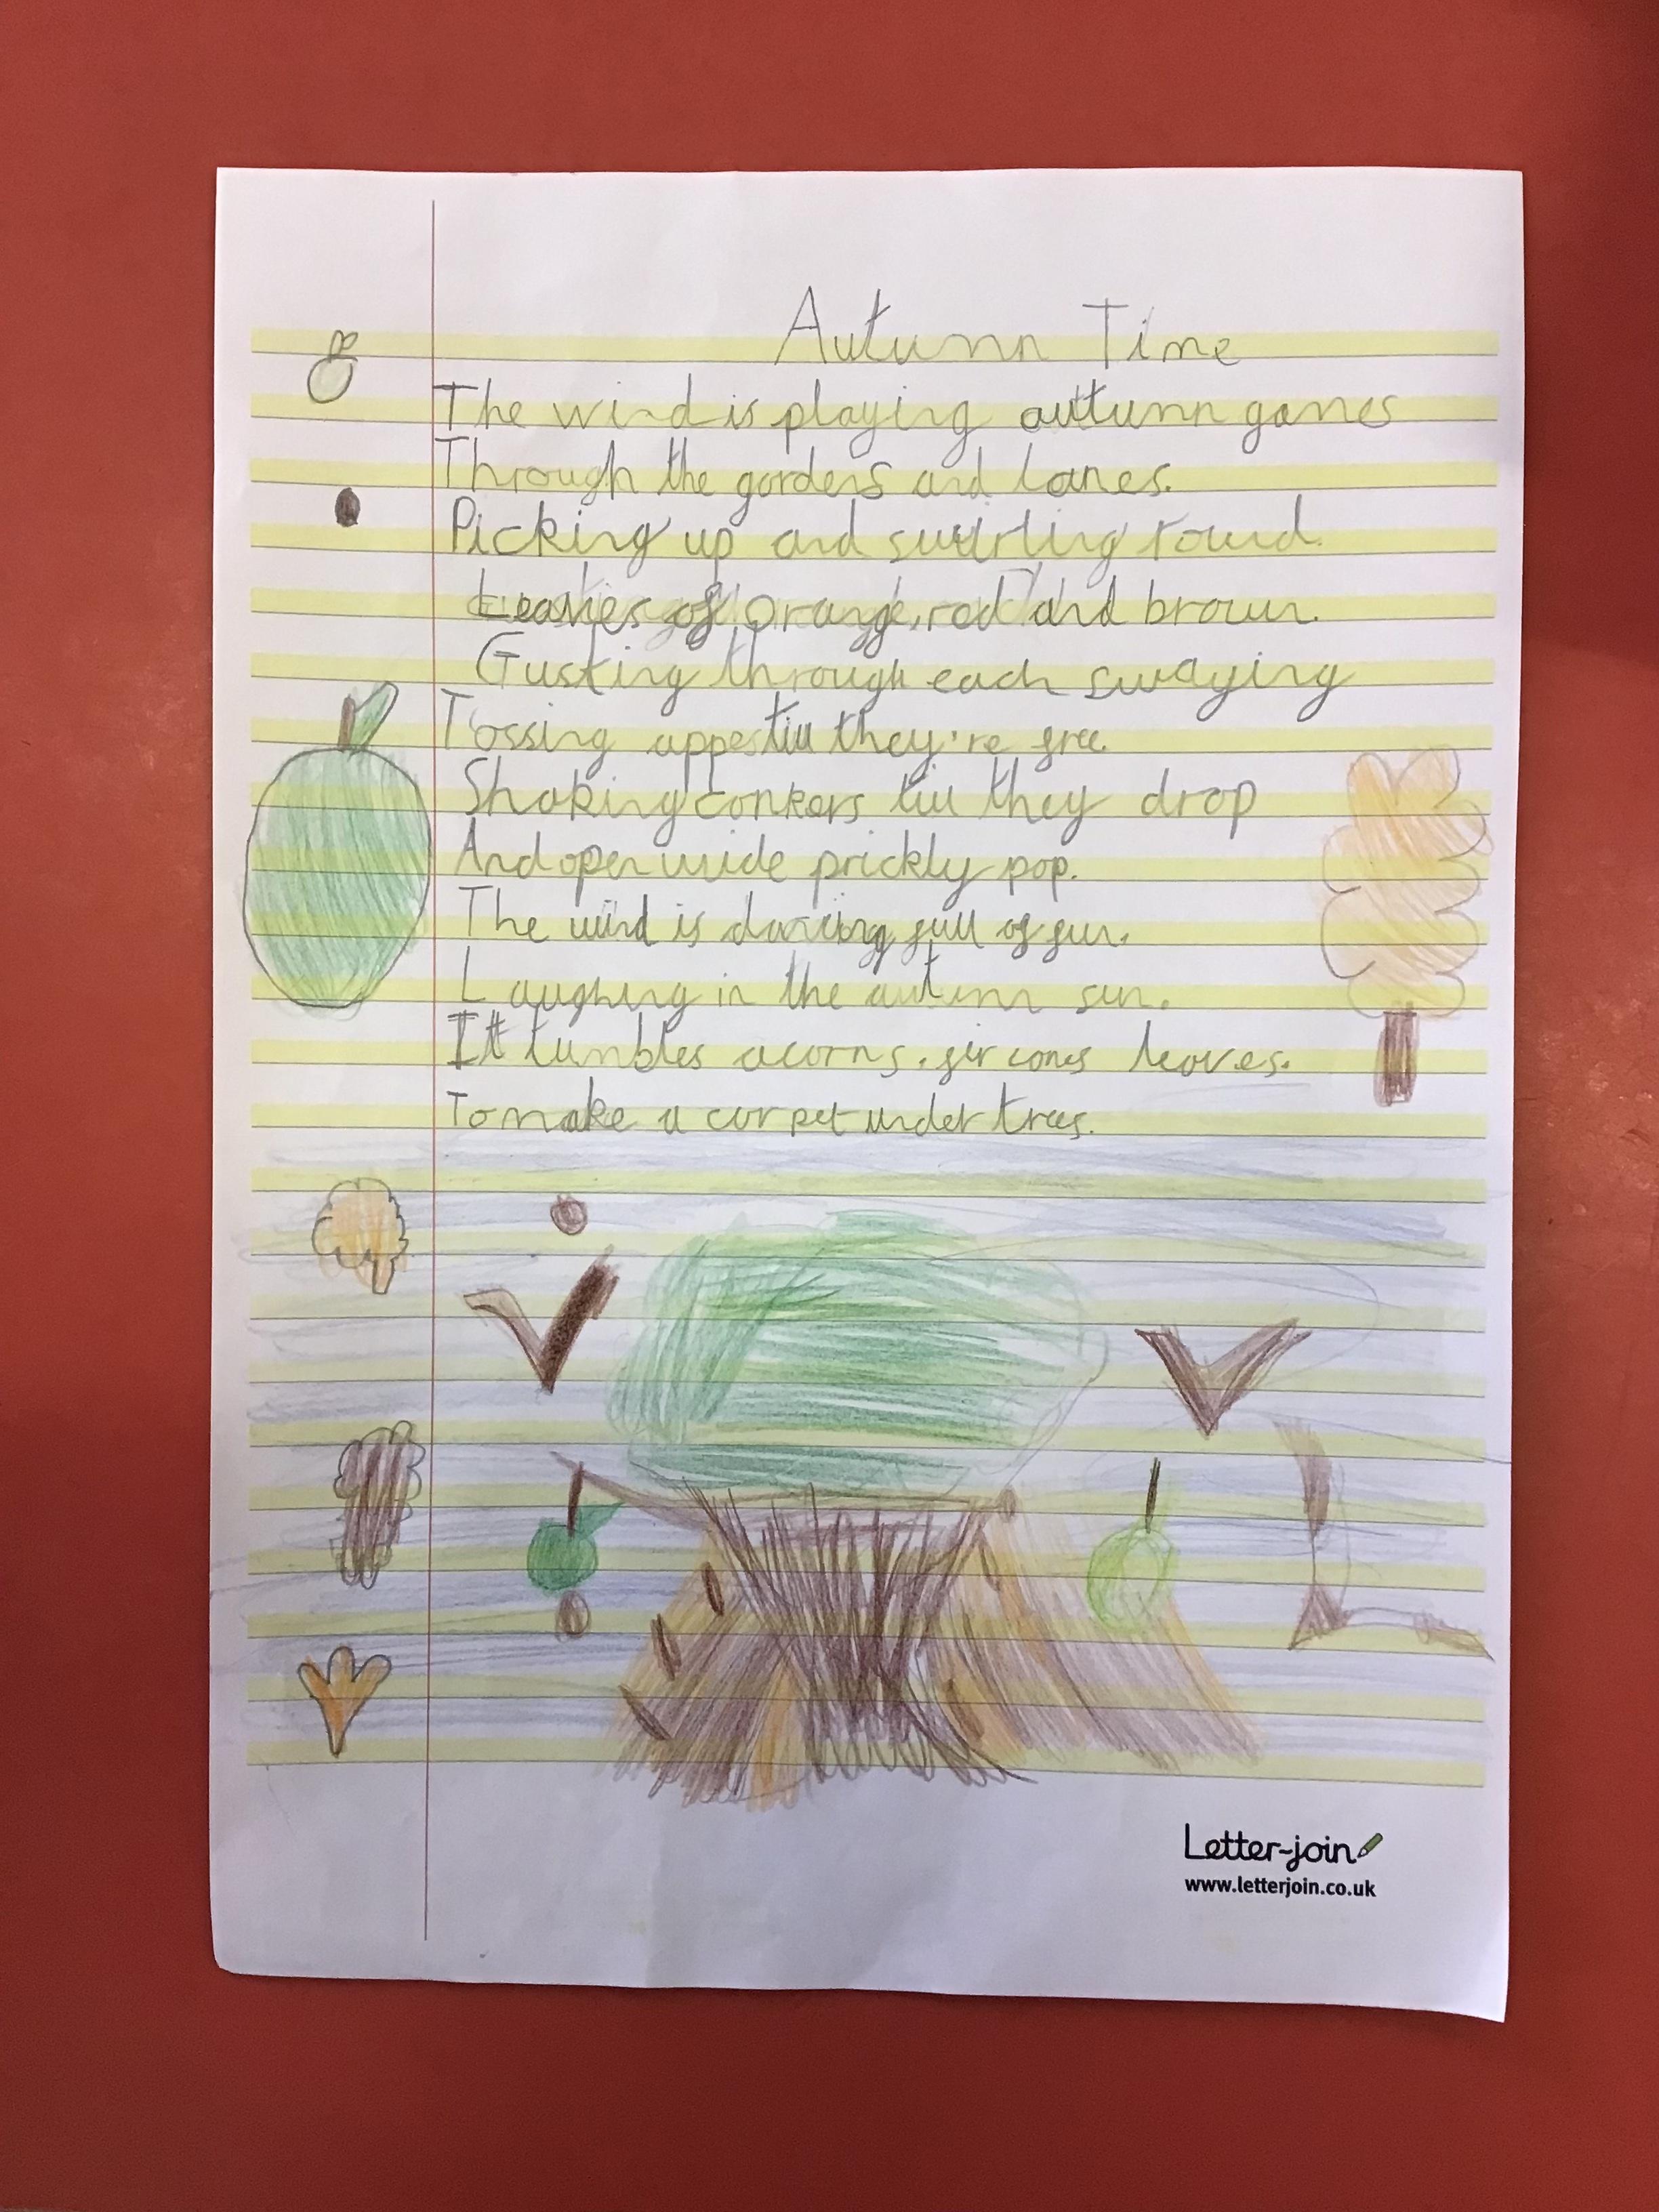 Autumn Time
The wind is playing autumn games
Through the gardens and lanes.
Picking up and swirling round.
Leaves of orange, red and brown.
Gusting through each swaying
Tossing appes till they're free.
Shaking conkers till they drop
And open wide prickly pop.
The wind is dancing full of fun.
Laughing in the autumn sun.
It tumbles acorns. fir cones leaves.
To make a carpet under trees.
Letter-join
www.letterjoin.co.uk